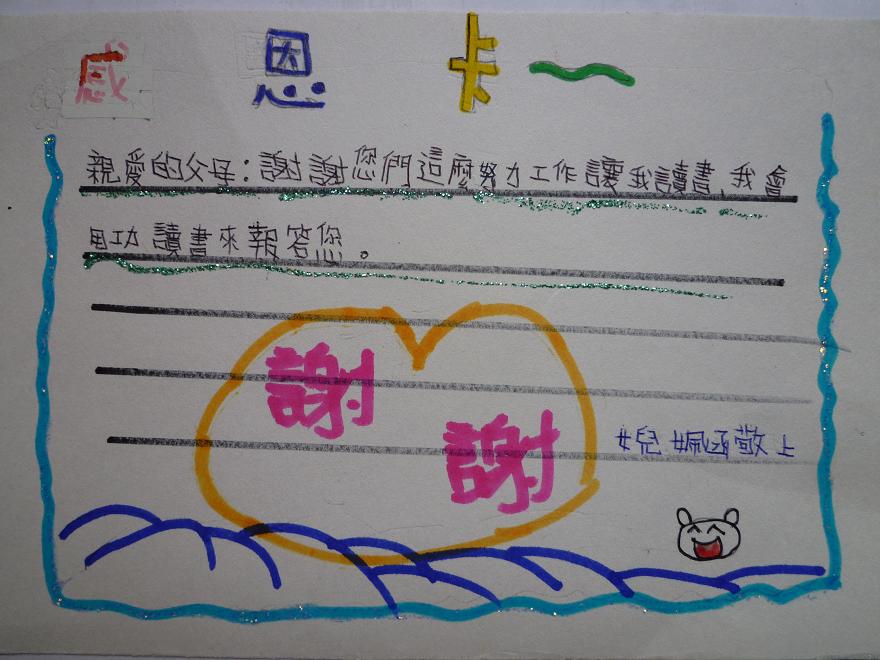 感恩卡~
親愛的父母:謝謝您們這麼努力工作讓我讀書,我會
用功讀書來報答您。
謝
謝
女兒 姵涵敬上